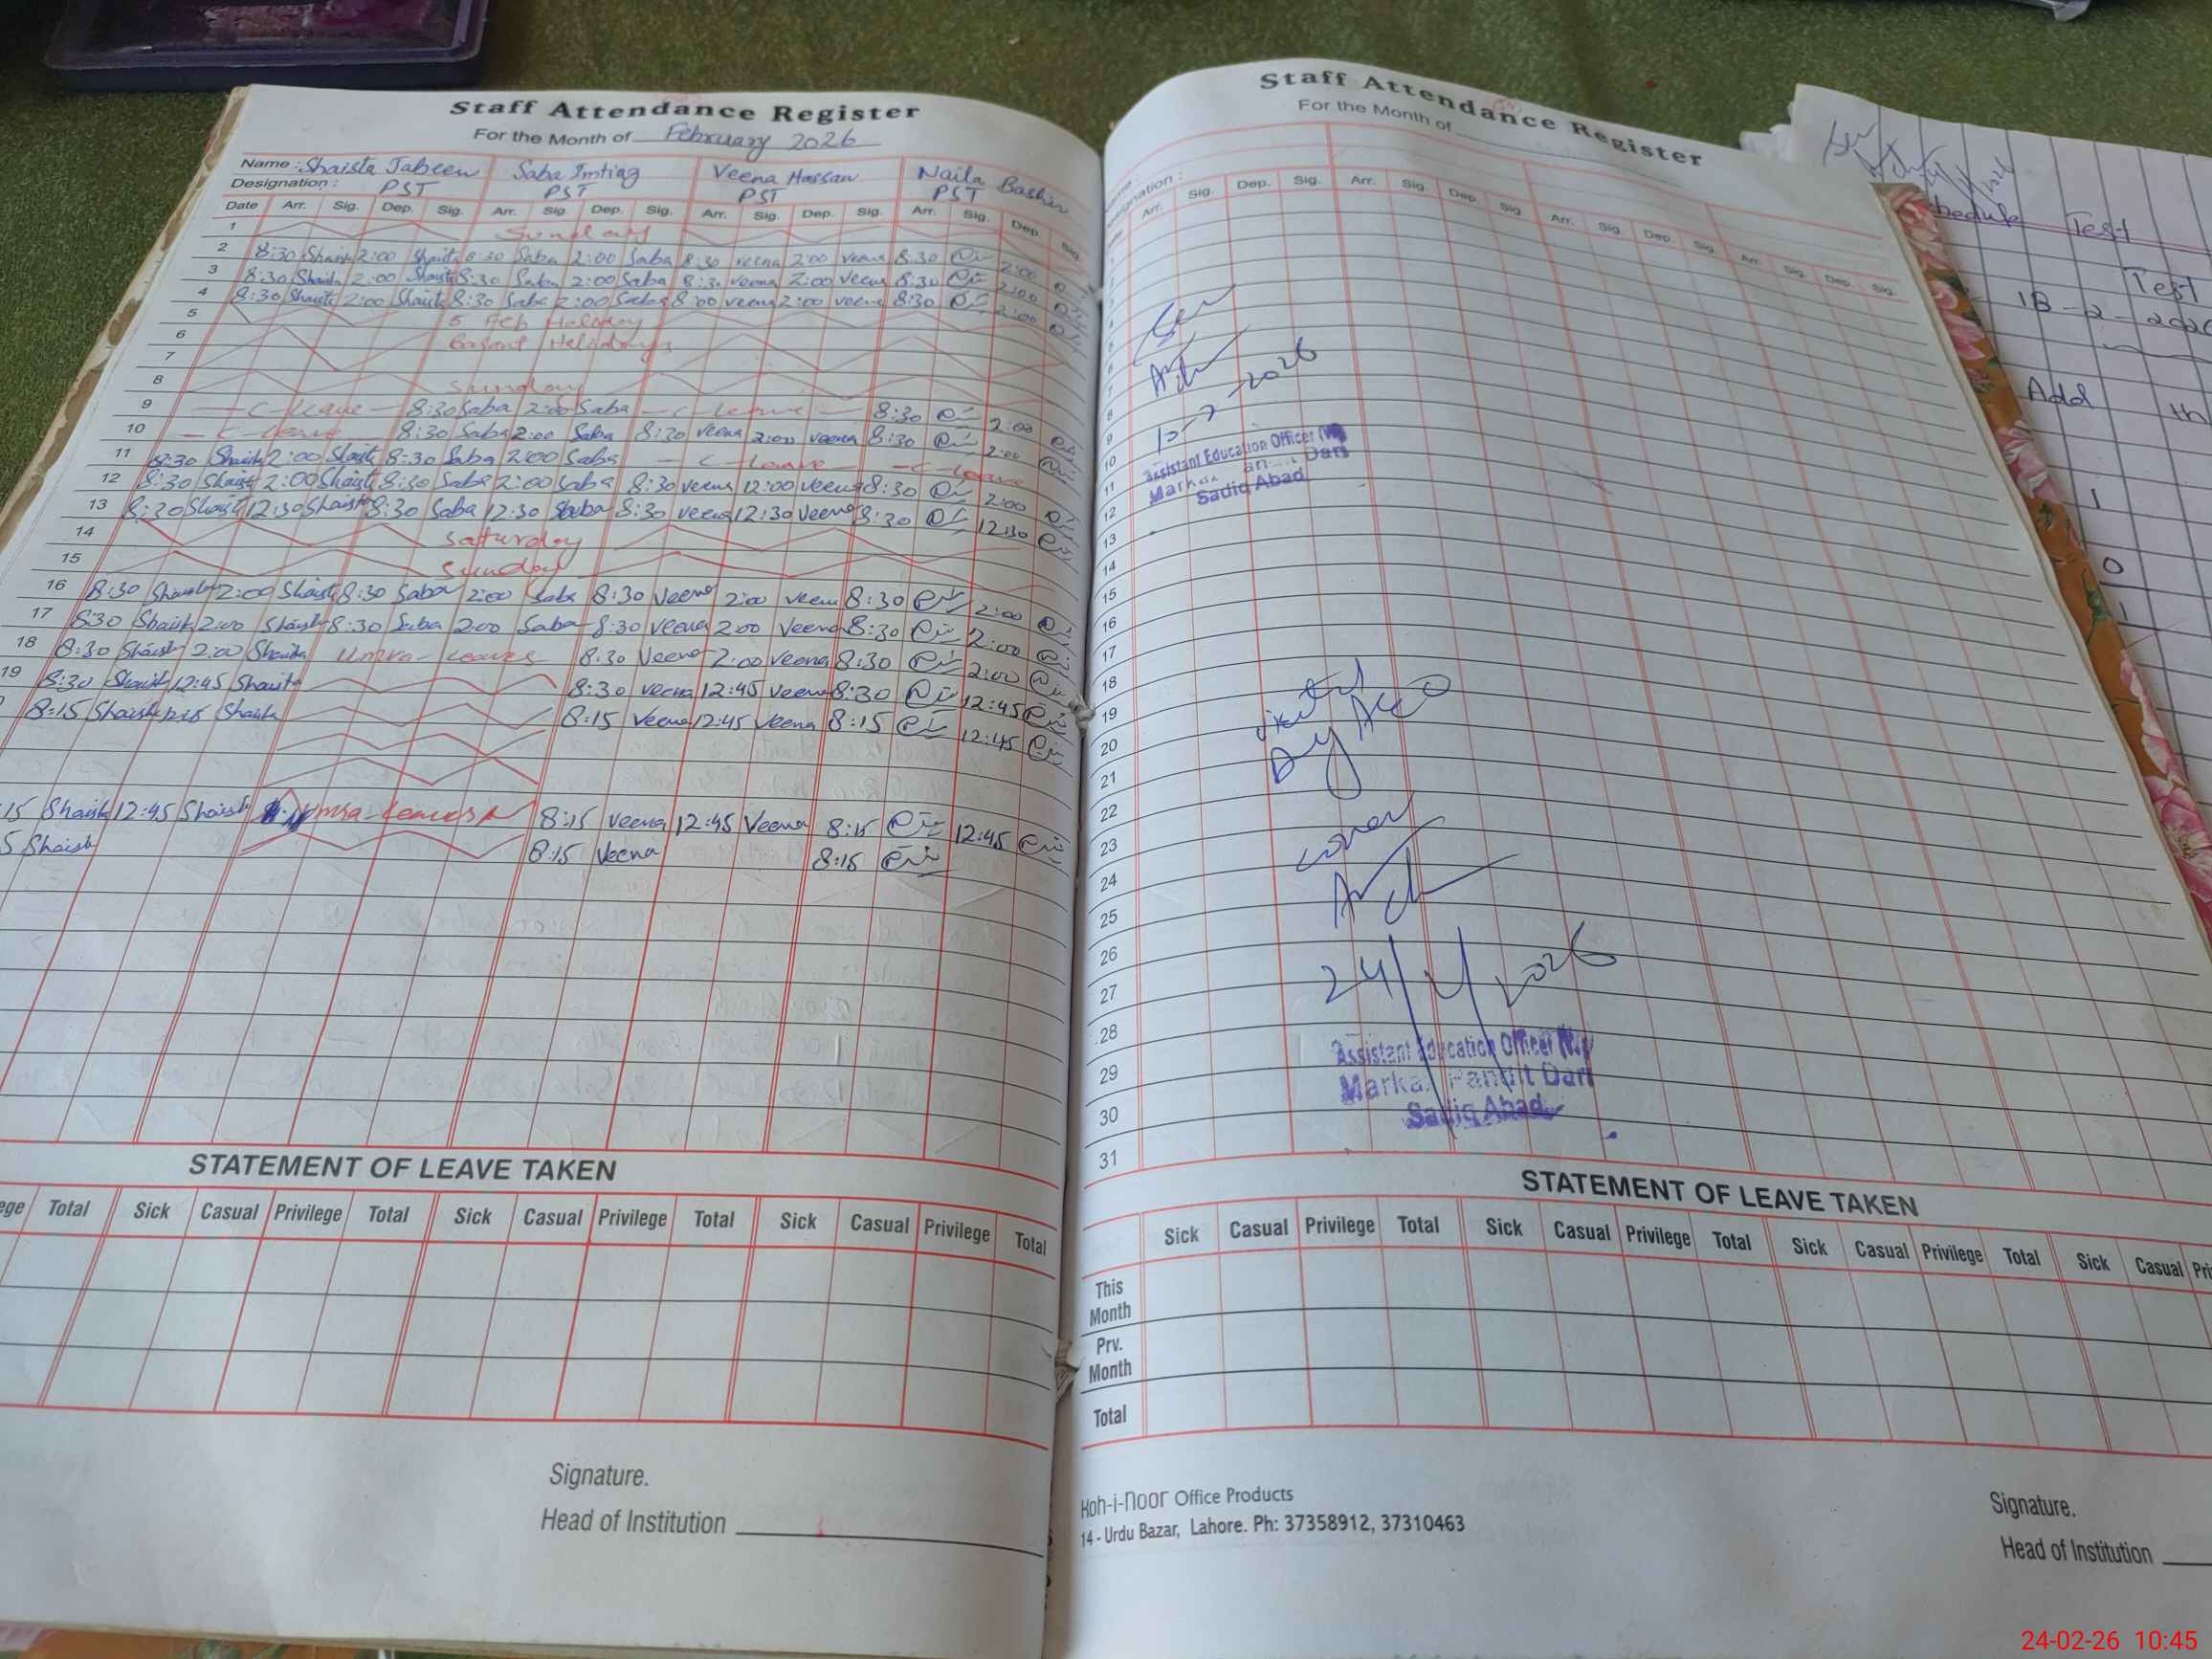 Staff Attendance Register
For the Month of February 2026
Name: Shaista Jabeen Saba Imtiaz Veena Hassan Naila Bashir
Designation: PST PST PST PST
Date Arr. Sig. Dep. Sig. Arr. Sig. Dep. Sig. Arr. Sig. Dep. Sig. Arr. Sig. Dep. Sig.
1 Sunday
2 8:30 Shaista 2:00 Shaista 8:30 Saba 2:00 Saba 8:30 Veena 2:00 Veena 8:30 2:00
3 8:30 Shaista 2:00 Shaista 8:30 Saba 2:00 Saba 8:30 Veena 2:00 Veena 8:30 2:00
4 8:30 Shaista 2:00 Shaista 8:30 Saba 2:00 Saba 8:00 Veena 2:00 Veena 8:30 2:00
5 5 Feb Holiday
6 Basant Holidays
7
8 Sunday
9 C-leave 8:30 Saba 2:00 Saba C-leave 8:30 2:00
10 C-leave 8:30 Saba 2:00 Saba 8:30 Veena 2:00 Veena 8:30 2:00
11 8:30 Shaista 2:00 Shaista 8:30 Saba 2:00 Saba C-leave C-leave
12 8:30 Shaista 2:00 Shaista 8:30 Saba 2:00 Saba 8:30 Veena 12:00 Veena 8:30 2:00
13 8:30 Shaista 12:30 Shaista 8:30 Saba 12:30 Saba 8:30 Veena 12:30 Veena 8:30 12:30
14 Saturday
15 Sunday
16 8:30 Shaista 2:00 Shaista 8:30 Saba 2:00 Saba 8:30 Veena 2:00 Veena 8:30 2:00
17 8:30 Shaista 2:00 Shaista 8:30 Saba 2:00 Saba 8:30 Veena 2:00 Veena 8:30 2:00
18 8:30 Shaista 2:00 Shaista Umra-leaves 8:30 Veena 2:00 Veena 8:30 2:00
19 8:30 Shaista 12:45 Shaista 8:30 Veena 12:45 Veena 8:30 12:45
8:15 Shaista Shaista 8:15 Veena 12:45 Veena 8:15 12:45
15 Shaista 12:45 Shaista Umra-leaves 8:15 Veena 12:45 Veena 8:15 12:45
5 Shaista 8:15 Veena 8:15
STATEMENT OF LEAVE TAKEN
ege Total Sick Casual Privilege Total Sick Casual Privilege Total Sick Casual Privilege Total
Signature.
Head of Institution
Staff Attendance Register
For the Month of
Arr. Sig. Dep. Sig. Arr. Sig. Dep. Sig. Arr. Sig. Dep. Sig. Arr. Sig. Dep. Sig.
8
9
10
11
12
13
14
15
16
17
18
19
20
21
22
23
24
25
26
27
28
29
30
31
Seen
Assistant Education Officer
Sadiq Abad
24/2/2026
Assistant Education Officer
Markaz Pandit Dari
Sadiq Abad
STATEMENT OF LEAVE TAKEN
Sick Casual Privilege Total Sick Casual Privilege Total Sick Casual Privilege Total Sick Casual Pri
This Month
Prv. Month
Total
Koh-i-noor Office Products
14 - Urdu Bazar, Lahore. Ph: 37358912, 37310463
Signature.
Head of Institution
hedule Test
Test
18-2-202
Add th
1
0
1
24-02-26 10:45